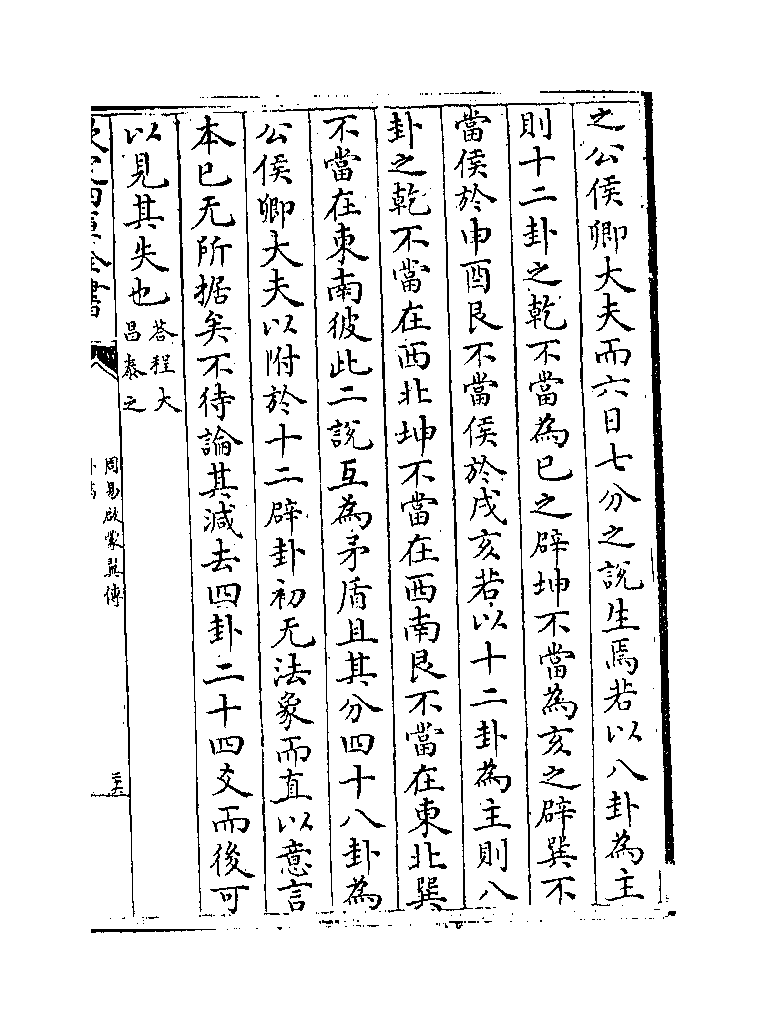 之公侯卿大夫而六日七分之說生焉若以八卦為主
則十二卦之乾不當為巳之辟坤不當為亥之辟巽不
當侯於申酉艮不當侯於戌亥若以十二卦為主則八
卦之乾不當在西北坤不當在西南艮不當在東北巽
不當在東南彼此二說互為矛盾且其分四十八卦為
公侯卿大夫以附於十二辟卦初无法象而直以意言
本已无所据矣不待論其減去四卦二十四爻而後可
以見其失也
答程大
昌泰之
周易啟蒙翼傳